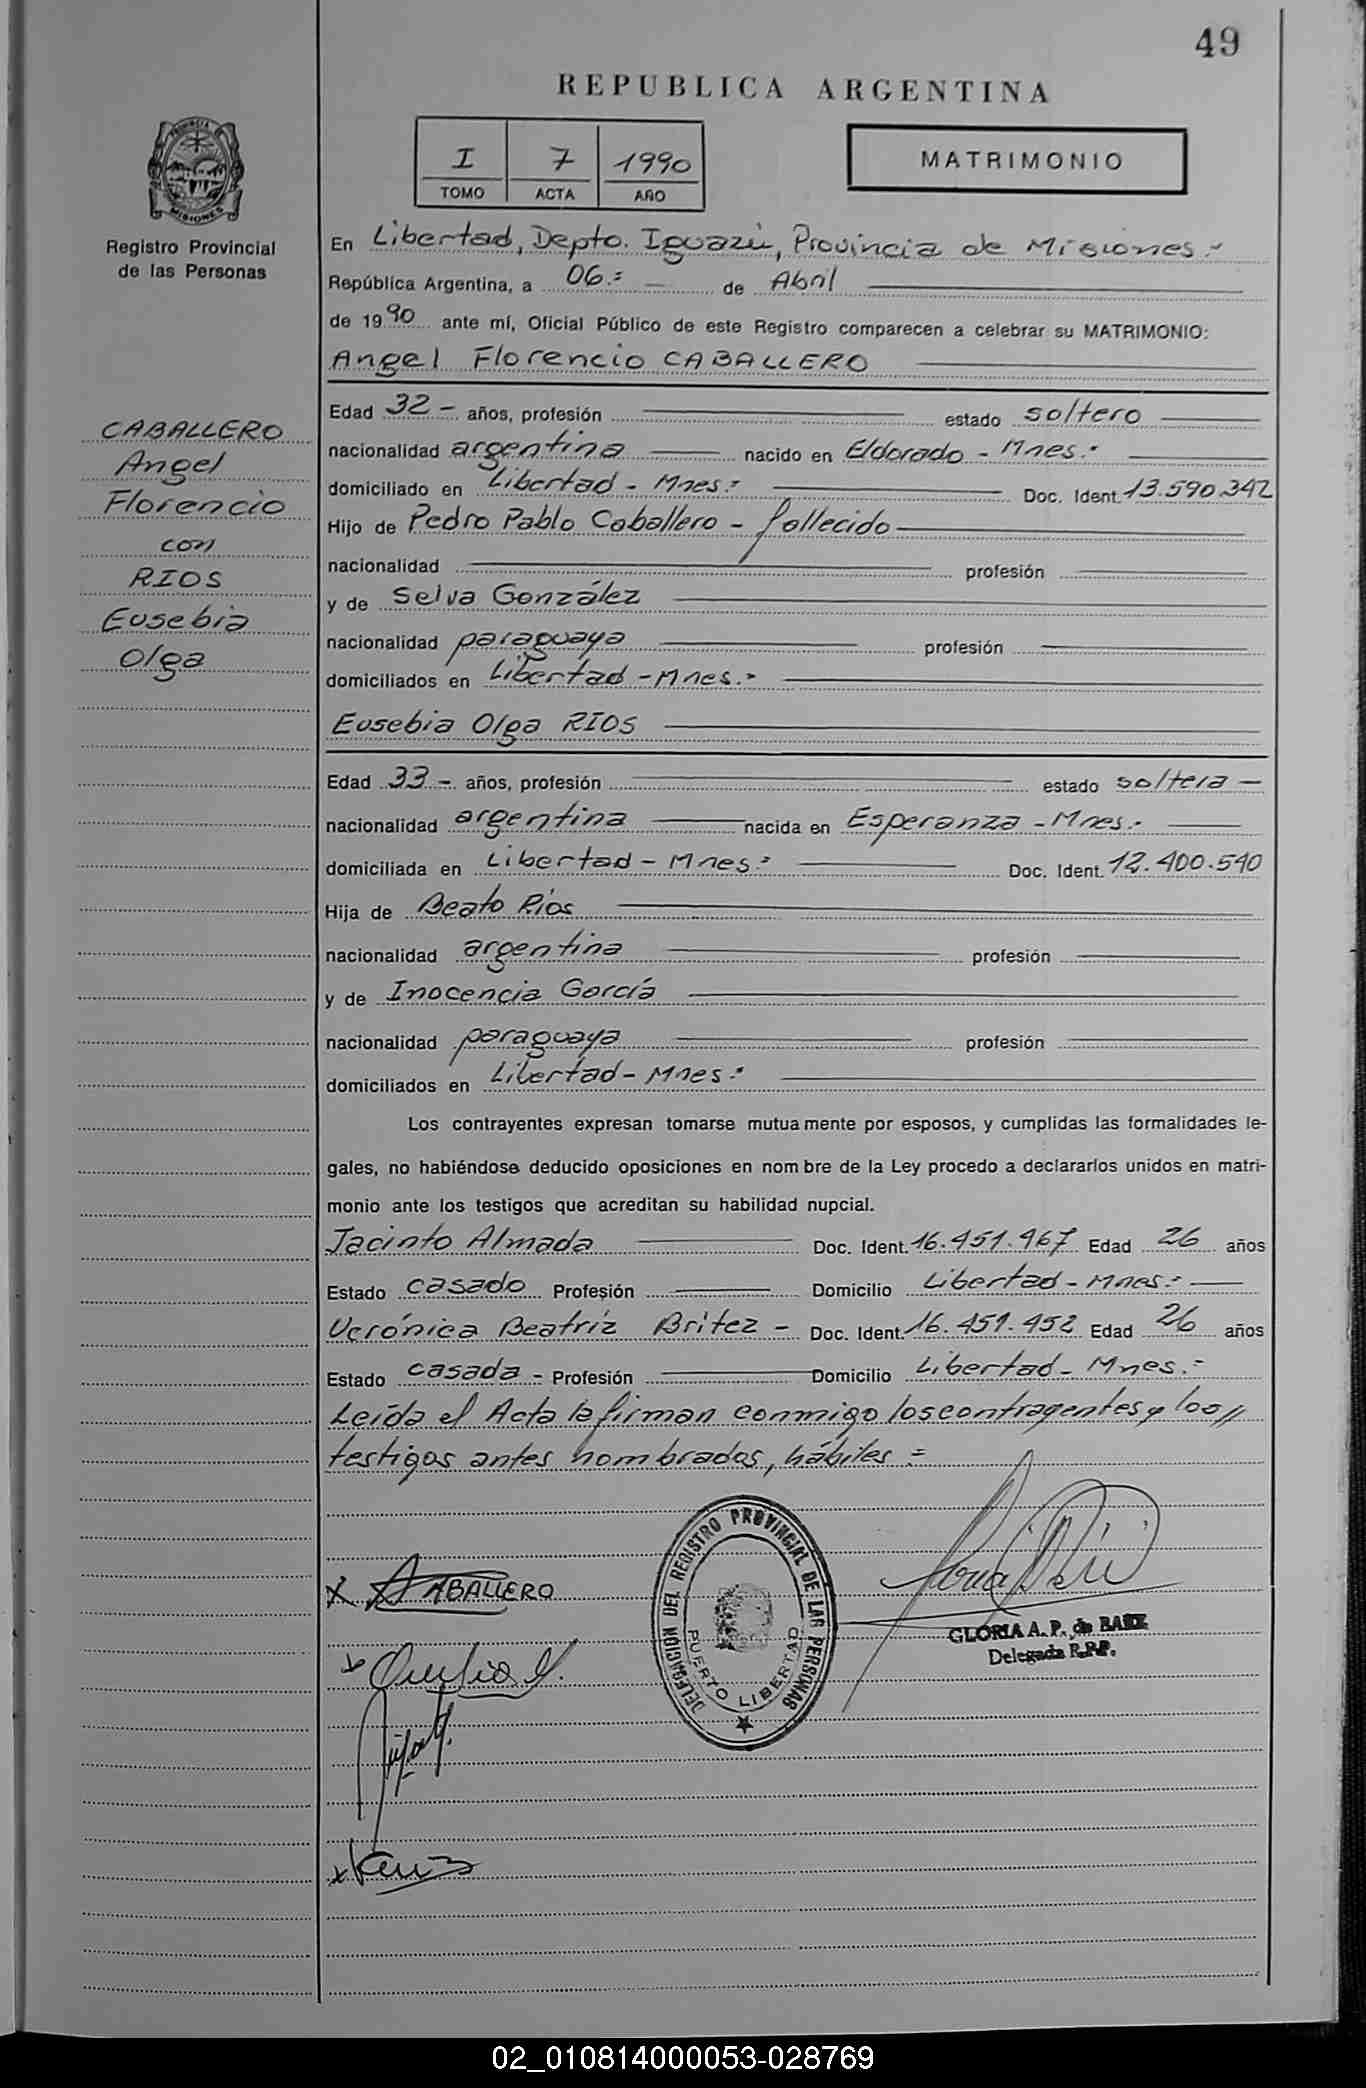 49
REPUBLICA ARGENTINA
I 7 1990
TOMO ACTA AÑO
MATRIMONIO
PROVINCIA DE MISIONES
Registro Provincial
de las Personas
CABALLERO
Angel
Florencio
con
RIOS
Eusebia
Olga
En Libertad, Depto. Iguazú, Provincia de Misiones.-
República Argentina, a 06.= de Abril
de 1990 ante mí, Oficial Público de este Registro comparecen a celebrar su MATRIMONIO:
Angel Florencio CABALLERO
Edad 32 - años, profesión estado soltero
nacionalidad argentina nacido en Eldorado - Mnes.-
domiciliado en Libertad - Mnes.= Doc. Ident. 13.590.342
Hijo de Pedro Pablo Caballero - fallecido
nacionalidad profesión
y de Selva González
nacionalidad paraguaya profesión
domiciliados en Libertad - Mnes.-
Eusebia Olga RIOS
Edad 33 - años, profesión estado soltera -
nacionalidad argentina nacida en Esperanza - Mnes.-
domiciliada en Libertad - Mnes.= Doc. Ident. 12.400.540
Hija de Beato Ríos
nacionalidad argentina profesión
y de Inocencia García
nacionalidad paraguaya profesión
domiciliados en Libertad - Mnes.=
Los contrayentes expresan tomarse mutuamente por esposos, y cumplidas las formalidades le-
gales, no habiéndose deducido oposiciones en nombre de la Ley procedo a declararlos unidos en matri-
monio ante los testigos que acreditan su habilidad nupcial.
Jacinto Almada Doc. Ident. 16.451.467 Edad 26 años
Estado casado Profesión Domicilio Libertad - Mnes.=
Verónica Beatríz Britez - Doc. Ident. 16.451.452 Edad 26 años
Estado casada - Profesión Domicilio Libertad - Mnes.=
Leída el Acta la firman conmigo los contragentes y los//
testigos antes nombrados, hábiles =
x CABALLERO
DELEGACION DEL REGISTRO PROVINCIAL DE LAS PERSONAS
PUERTO LIBERTAD
GLORIA A. P. de BAEZ
Delegada R.P.P.
02_010814000053-028769